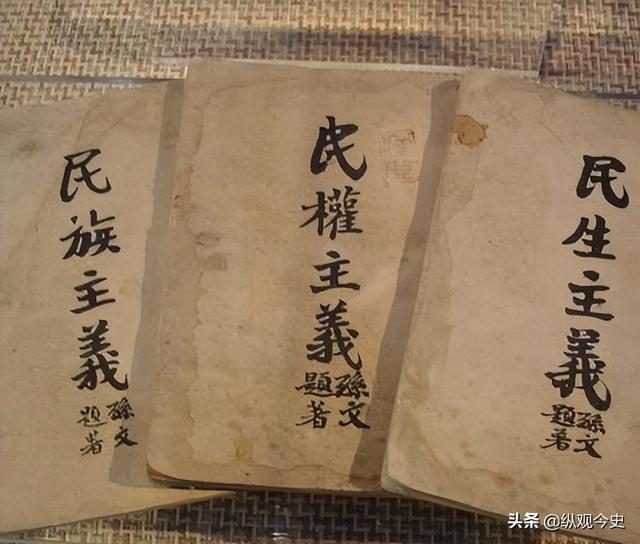 民族主義
孫文
題著
民權主義
孫文
題著
民生主義
孫文
題著
头条 @纵观今史